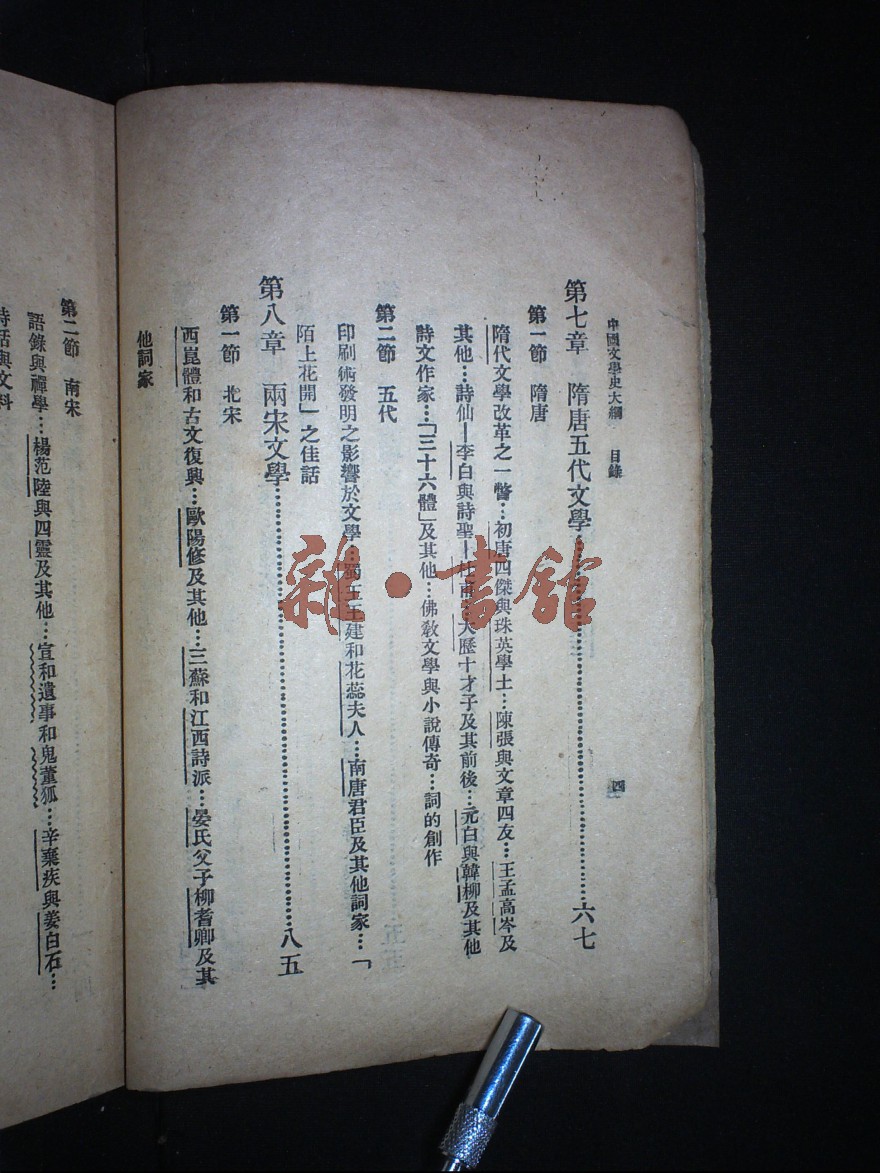 中國文學史大綱　目錄
四
第七章　隋唐五代文學……六七
第一節　隋唐
隋代文學改革之一瞥…初唐四傑與珠英學士…陳張與文章四友…王孟高岑及
其他…詩仙—李白與詩聖—杜甫…大歷十才子及其前後…元白與韓柳及其他
詩文作家…「三十六體」及其他…佛教文學與小說傳奇…詞的創作
第二節　五代
印刷術發明之影響於文學…蜀主王建和花蕊夫人…南唐君臣及其他詞家…「
陌上花開」之佳話
第八章　兩宋文學……八五
第一節　北宋
西崑體和古文復興…歐陽修及其他…三蘇和江西詩派…晏氏父子柳耆卿及其
他詞家
第二節　南宋
語錄與禪學…楊范陸與四靈及其他…宣和遺事和鬼董狐…辛棄疾與姜白石…
詩話與文料
雜·書舘